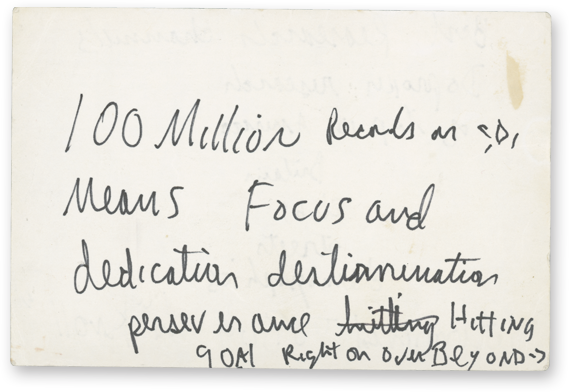 100 Million Records on
Means Focus and
dedication destinmination
perserverance hitting HITTING
GOAl Right on over BEYOND->